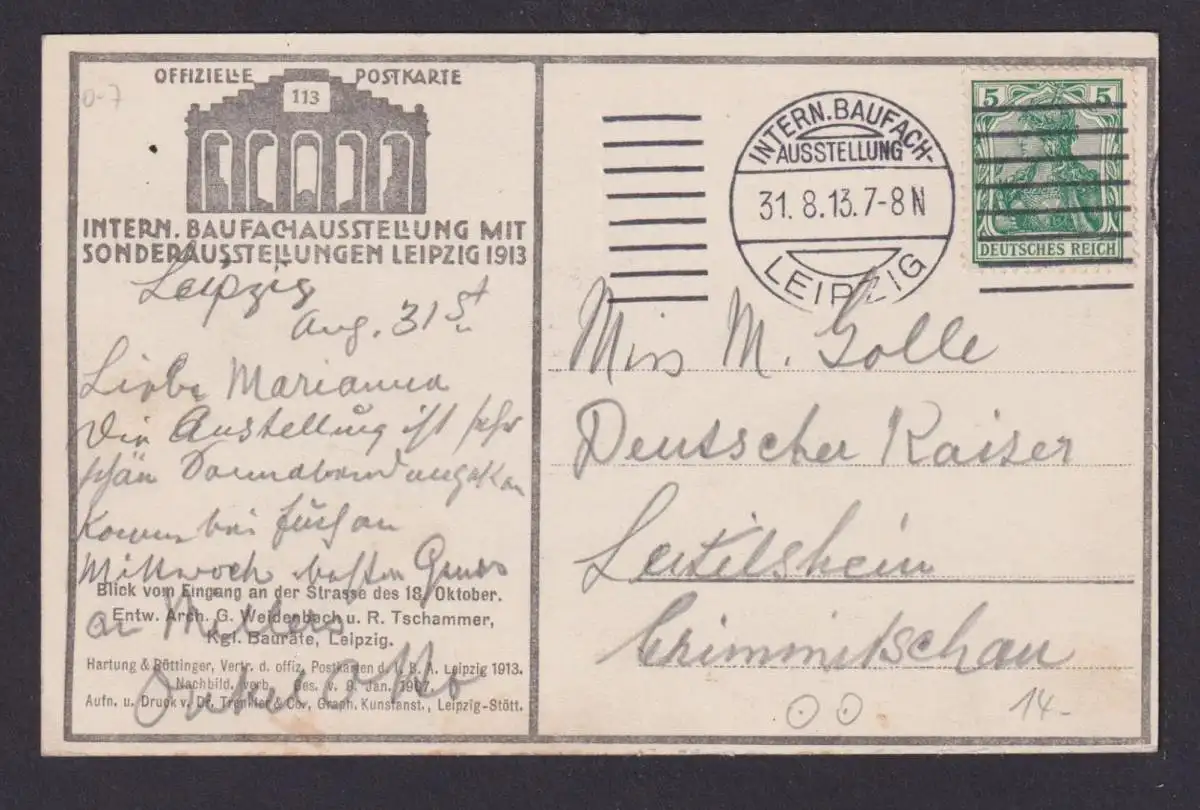 OFFIZIELLE POSTKARTE
113
INTERN. BAUFACHAUSSTELLUNG MIT
SONDERAUSSTELLUNGEN LEIPZIG 1913
0-7
Leipzig
Aug. 31st
Liebe Marianna
Die Austellung ist sehr
schön Sonnabend angekom
Komm bei Euch an
Mittwoch besten Gruss
an Müllers
Onkel Otto
Blick vom Eingang an der Strasse des 18. Oktober.
Entw. Arch. G. Weidenbach u. R. Tschammer,
Kgl. Bauräte, Leipzig.
Hartung & Böttinger, Vertr. d. offiz. Postkarten d. I. B. A. Leipzig 1913.
Nachbild. verb. Ges. v. 9. Jan. 1907.
Aufn. u. Druck v. Dr. Trenkler & Co., Graph. Kunstanst., Leipzig-Stött.
INTERN. BAUFACH-
AUSSTELLUNG
31. 8. 13. 7-8 N
LEIPZIG
5 5
DEUTSCHES REICH
Miss M. Golle
Deutscher Kaiser
Leitelsheim
Crimmitschau
14-